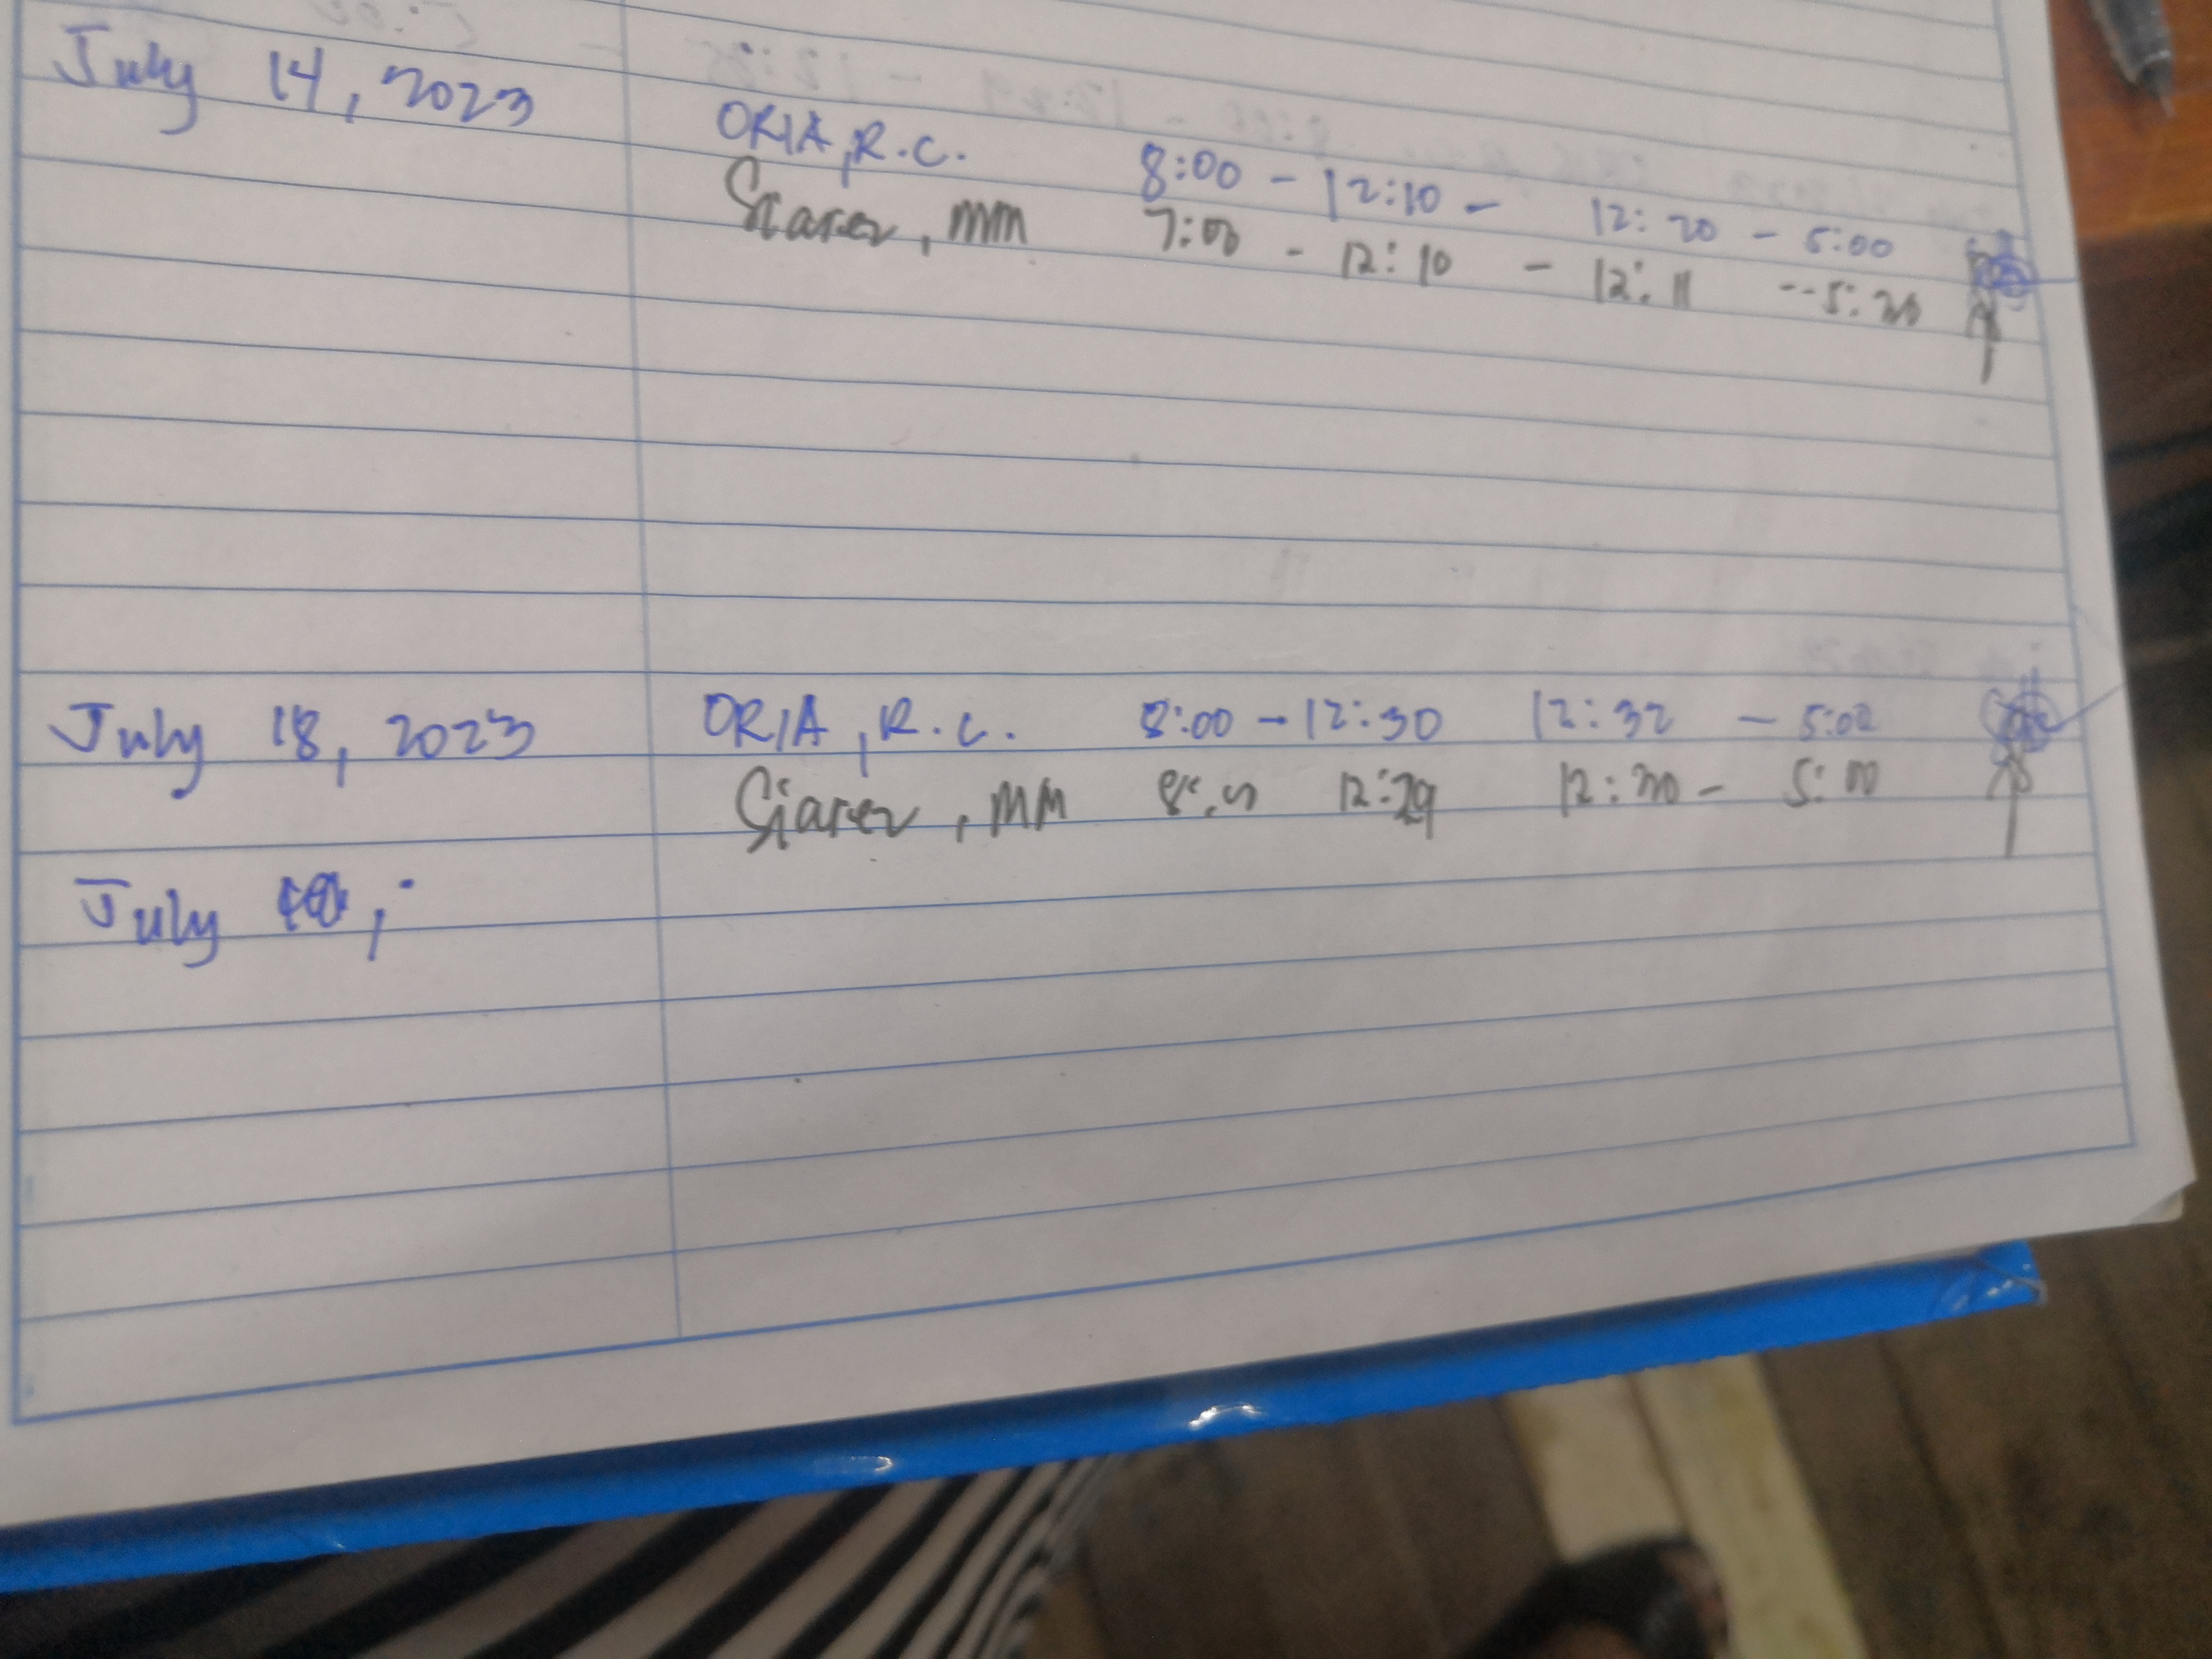 July 14, 2023
ORIA, R.C. 8:00 - 12:10 - 12:20 - 5:00
MM 7:00 - 12:10 - 12:11 -- 5:20
July 18, 2023 ORIA, R.C. 8:00 - 12:30 12:32 - 5:02
MM 12:29 12:30 - 5:00
July